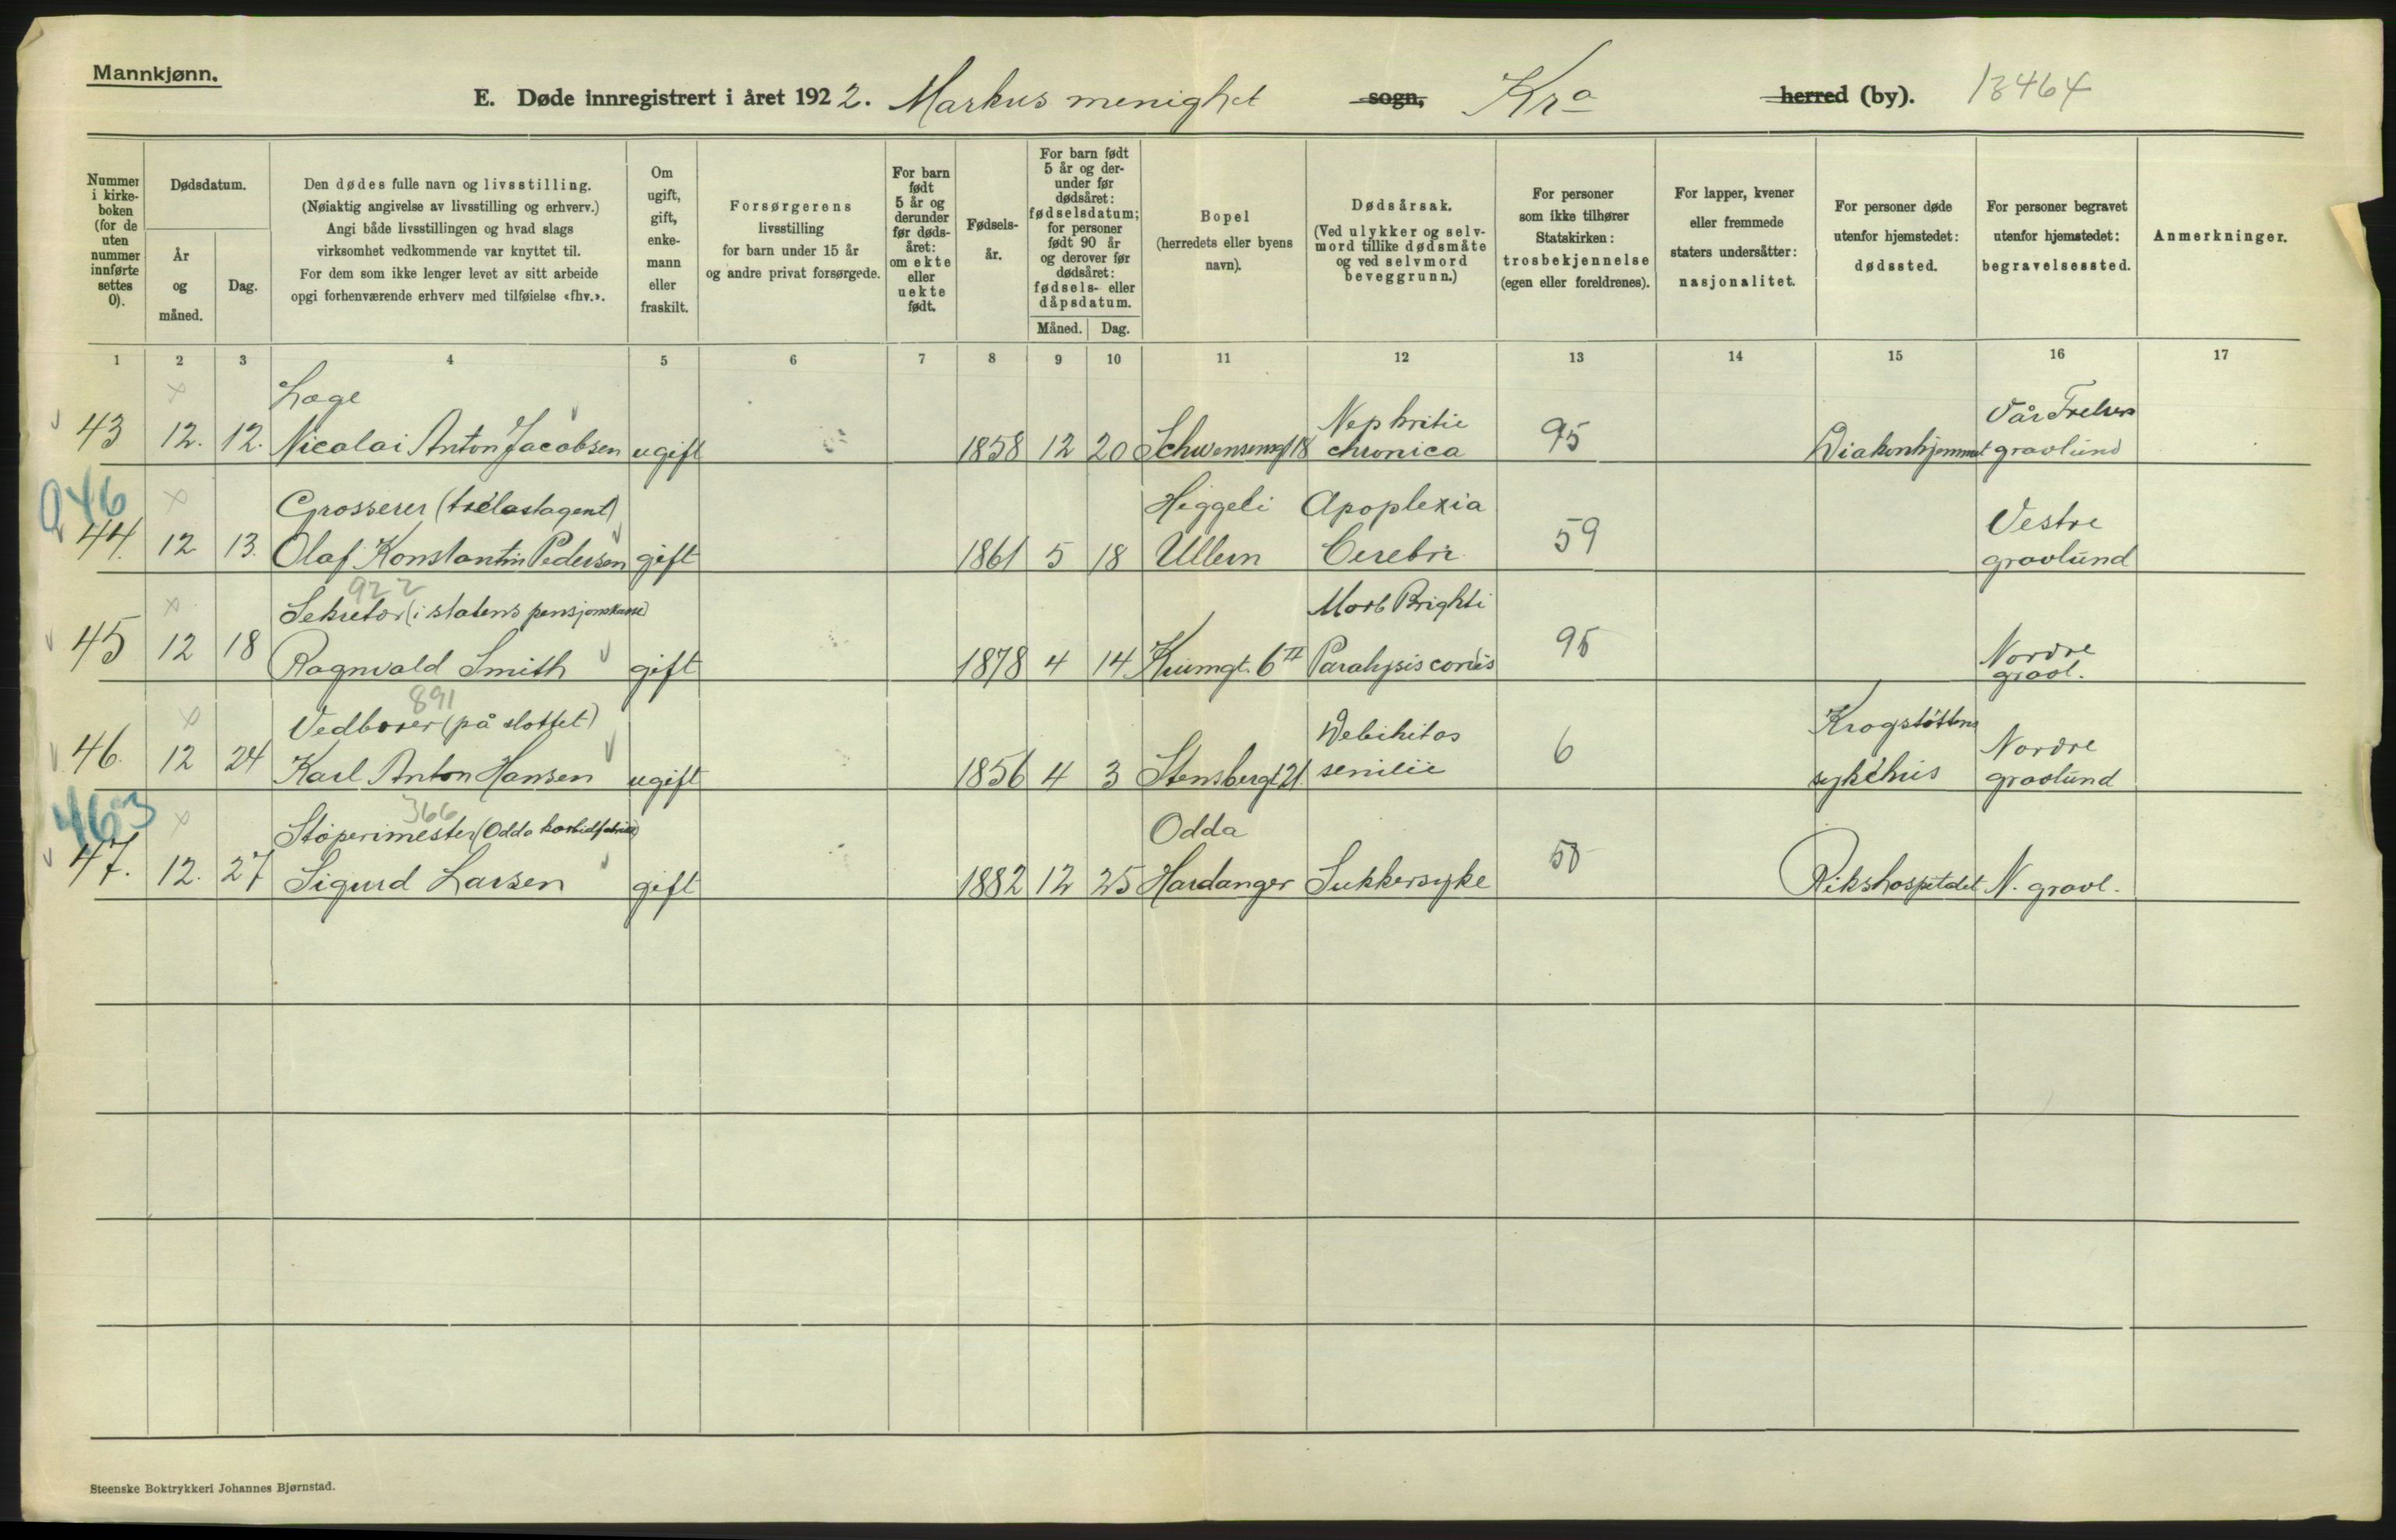 Mannkjønn.
E. Døde innregistrert i året 1922. Markus menighet sogn, Kra herred (by). 13464
Nummer i kirkeboken (for de uten nummer innførte settes 0).
Dødsdatum.
År og måned.
Dag.
Den dødes fulle navn og livsstilling.
(Nøiaktig angivelse av livsstilling og erhverv.)
Angi både livsstillingen og hvad slags
virksomhet vedkommende var knyttet til.
For dem som ikke lenger levet av sitt arbeide
opgi forhenværende erhverv med tilføielse «fhv.».
Om ugift, gift, enkemann eller fraskilt.
Forsørgerens
livsstilling
for barn under 15 år
og andre privat forsørgede.
For barn født 5 år og derunder før dødsåret: om ekte eller uekte født.
Fødselsår.
For barn født 5 år og derunder før dødsåret: fødselsdatum; for personer født 90 år og derover før dødsåret: fødsels- eller dåpsdatum.
Måned. Dag.
Bopel
(herredets eller byens navn).
Dødsårsak.
(Ved ulykker og selvmord tillike dødsmåte og ved selvmord beveggrunn.)
For personer som ikke tilhører Statskirken: trosbekjennelse (egen eller foreldrenes).
For lapper, kvener eller fremmede staters undersåtter: nasjonalitet.
For personer døde utenfor hjemstedet: dødssted.
For personer begravet utenfor hjemstedet: begravelsessted.
Anmerkninger.
1 2 3 4 5 6 7 8 9 10 11 12 13 14 15 16 17
Læge Nephritis Vår Frelsers
43 12. 12. Nicolai Anton Jacobsen ugift 1858 12 20 Schwensensgt 18 chronica 95 Diakonhjemmet gravlund
246
Grosserer (trælastagent) Heggeli Apoplexia Vestre
44. 12 13. Olaf Konstantin Pedersen gift 1861 5 18 Ullern Cerebri 59 gravlund
922
Sekretær (i statens pensjonskasse) Morb Brighti Nordre
45 12 18 Ragnvald Smith gift 1878 4 14 6 II Paralysis cordis 95 gravl.
891
Vedbærer (på slottet) Debilitas Krogstøttens Nordre
46. 12 24 Karl Anton Hansen ugift 1856 4 3 Stensbergt 21. senilis 6 sykehus gravlund
463 366
Støperimester (Odda karbidfabrikk) Odda
47. 12. 27 Sigurd Larsen gift 1882 12 25 Hardanger Sukkersyke 58 Rikshospitalet N. gravl.
Steenske Boktrykkeri Johannes Bjørnstad.